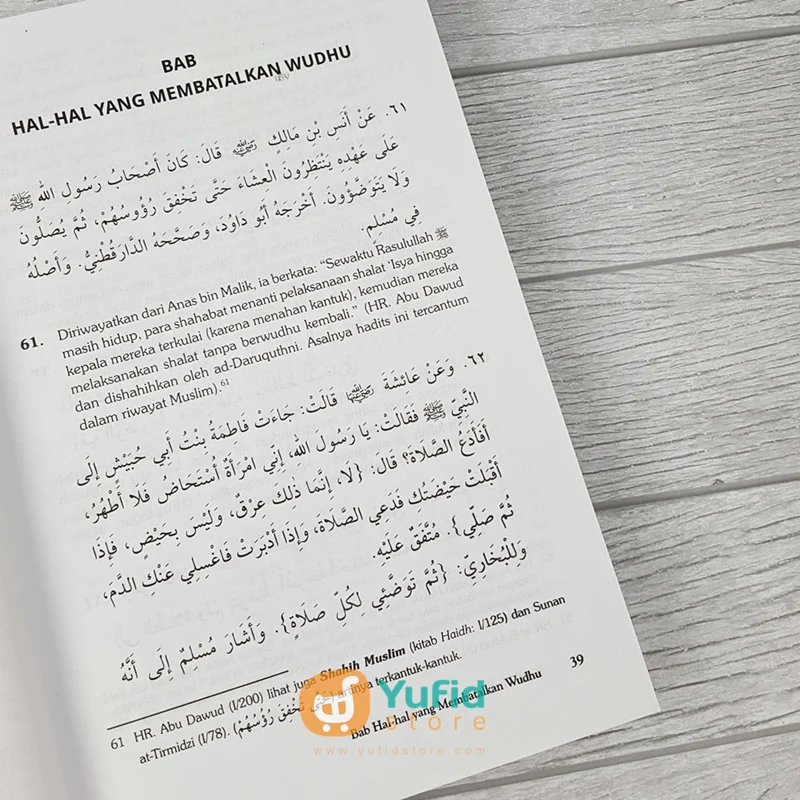 BAB
HAL-HAL YANG MEMBATALKAN WUDHU
٦١. عَنْ أَنَسِ بْنِ مَالِكٍ ﵁ قَالَ: كَانَ أَصْحَابُ رَسُولِ اللهِ ﷺ
عَلَى عَهْدِهِ يَنْتَظِرُونَ الْعِشَاءَ حَتَّى تَخْفِقَ رُؤُوسُهُمْ، ثُمَّ يُصَلُّونَ
وَلَا يَتَوَضَّؤُونَ. أَخْرَجَهُ أَبُو دَاوُدَ، وَصَحَّحَهُ الدَّارَقُطْنِيُّ. وَأَصْلُهُ
فِي مُسْلِمٍ.
61. Diriwayatkan dari Anas bin Malik, ia berkata: “Sewaktu Rasulullah ﷺ
masih hidup, para shahabat menanti pelaksanaan shalat ‘Isya hingga
kepala mereka terkulai (karena menahan kantuk), kemudian mereka
melaksanakan shalat tanpa berwudhu kembali.” (HR. Abu Dawud
dan dishahihkan oleh ad-Daruquthni. Asalnya hadits ini tercantum
dalam riwayat Muslim).61
٦٢. وَعَنْ عَائِشَةَ ﵂ قَالَتْ: جَاءَتْ فَاطِمَةُ بِنْتُ أَبِي حُبَيْشٍ إِلَى
النَّبِيِّ ﷺ فَقَالَتْ: يَا رَسُولَ اللهِ، إِنِّي امْرَأَةٌ أُسْتَحَاضُ فَلَا أَطْهُرُ،
أَفَأَدَعُ الصَّلَاةَ؟ قَالَ: {لَا، إِنَّمَا ذَلِكَ عِرْقٌ، وَلَيْسَ بِحَيْضٍ، فَإِذَا
أَقْبَلَتْ حَيْضَتُكِ فَدَعِي الصَّلَاةَ، وَإِذَا أَدْبَرَتْ فَاغْسِلِي عَنْكِ الدَّمَ،
ثُمَّ صَلِّي}. مُتَّفَقٌ عَلَيْهِ.
وَلِلْبُخَارِيِّ: {ثُمَّ تَوَضَّئِي لِكُلِّ صَلَاةٍ}. وَأَشَارَ مُسْلِمٌ إِلَى أَنَّهُ
61 HR. Abu Dawud (I/200) lihat juga Shahih Muslim (kitab Haidh: I/125) dan Sunan
at-Tirmidzi (I/78). (حَتَّى تَخْفِقَ رُؤُسُهُمْ) artinya terkantuk-kantuk.
Bab Hal-hal yang Membatalkan Wudhu 39
Yufid
store
www.yufidstore.com